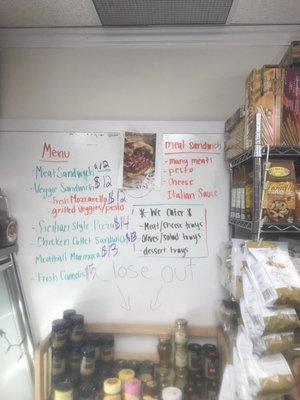 Menu
Meat Sandwich $12
Veggie Sandwich $12
- Fresh Mozzarella
grilled veggies/pesto
$12
- Sicilian Style Pizza $14
Chicken Cutlet Sandwich $13
Meatball Marinara $13
- Fresh Cannolis $5
Meat Sandwich
- many meats
- pesto
- cheese
- Italian Sauce
* We Cater *
- Meat/Cheese trays
- Olives/Salad trays
- dessert trays
lose out